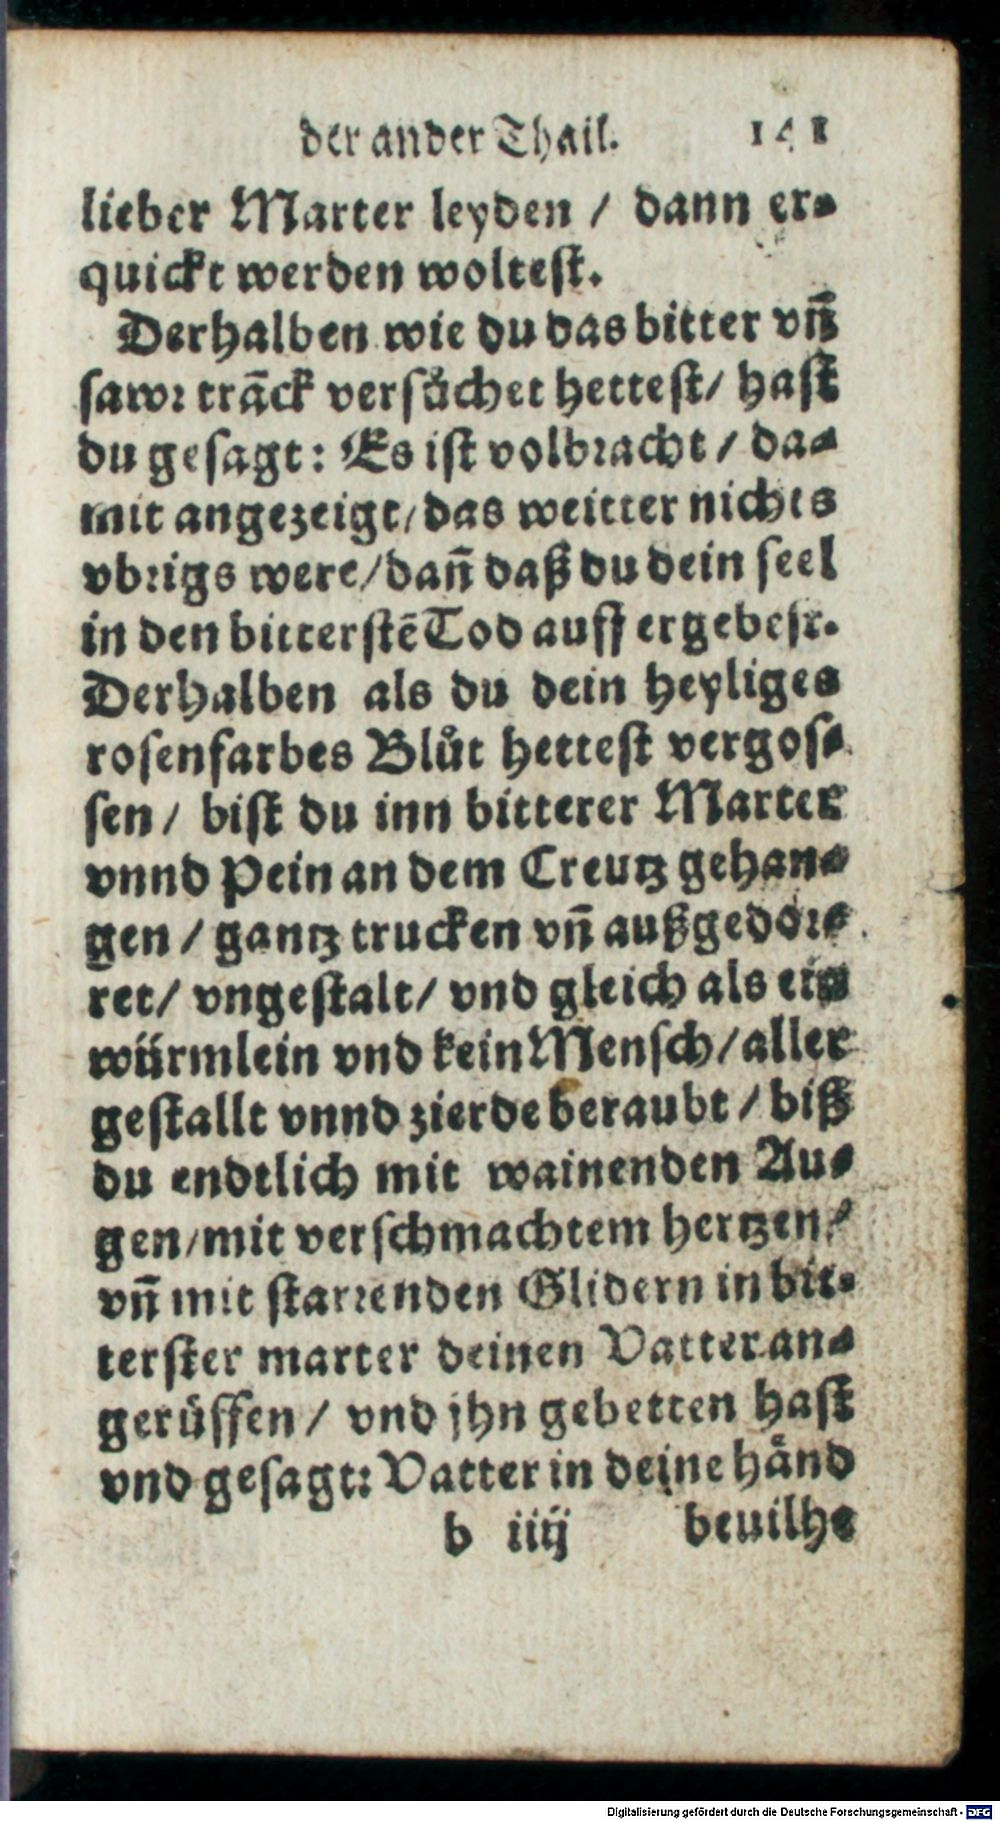 der ander Thail. 141
lieber Marter leyden / dann er-
quickt werden woltest.
Derhalben wie du das bitter vñ
sawr trãck versůchet hettest / hast
du gesagt: Es ist volbracht / da-
mit angezeigt / das weitter nichts
vbrigs were / dañ daß du dein seel
in den bitterstẽ Tod auff ergebest.
Derhalben als du dein heyliges
rosenfarbes Blůt hettest vergos-
sen / bist du inn bitterer Marter
vnnd Pein an dem Creutz gehan-
gen / gantz trucken vñ außgedör-
ret / vngestalt / vnd gleich als ein
würmlein vnd kein Mensch / aller
gestallt vnnd zierde beraubt / biß
du endtlich mit wainenden Au-
gen / mit verschmachtem hertzen /
vñ mit starrenden Glidern in bit-
terster marter deinen Vatter an-
gerüffen / vnd jhn gebetten hast
vnd gesagt: Vatter in deine hånd
b iiij beuilhe
Digitalisierung gefördert durch die Deutsche Forschungsgemeinschaft - DFG